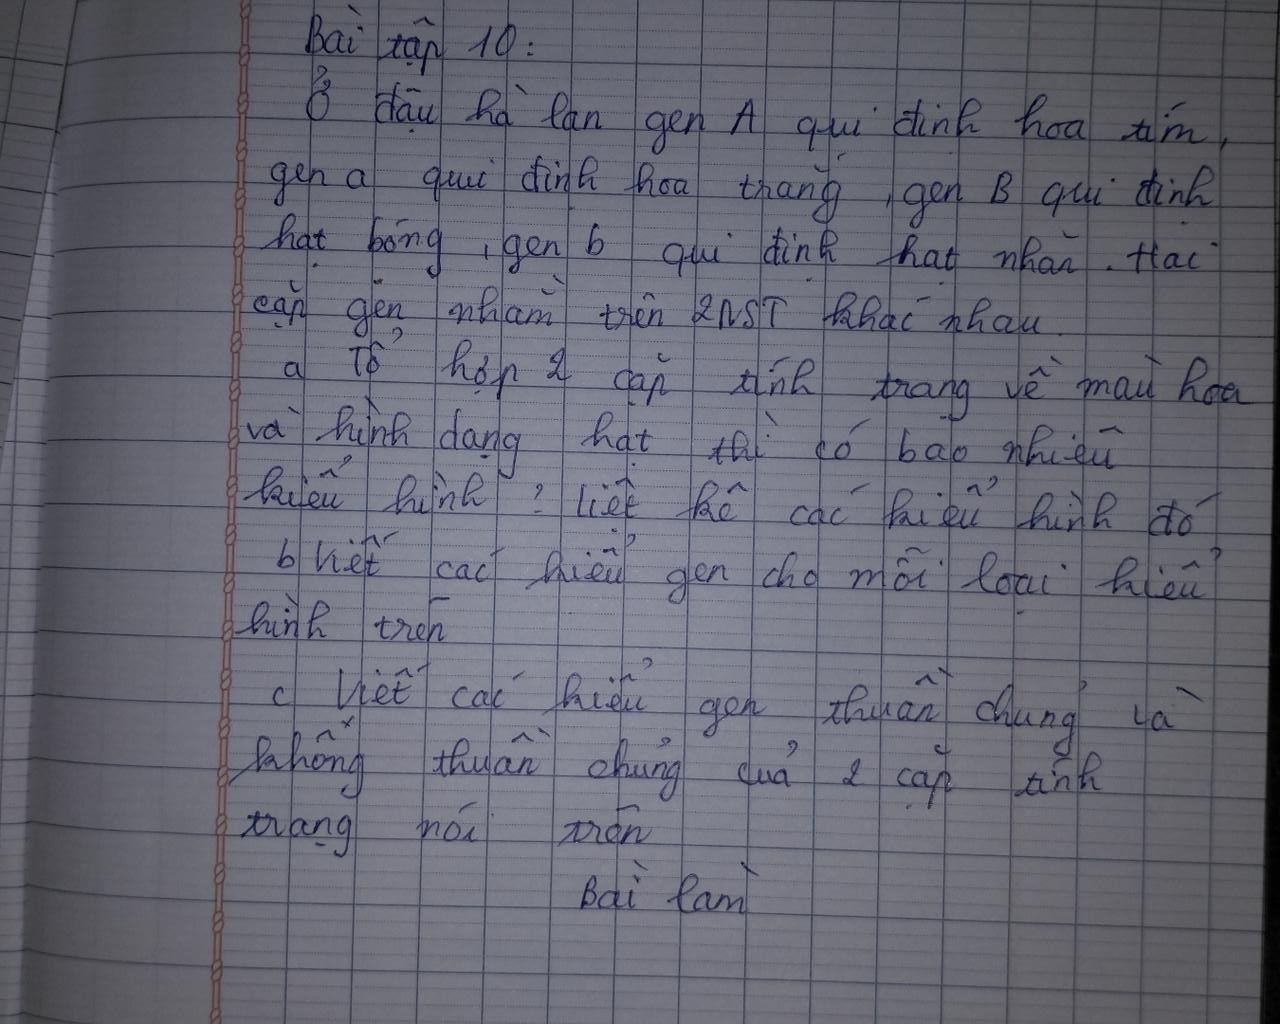 Bài tập 10:
Ở đậu hà lan gen A qui định hoa tím,
gen a qui định hoa trắng, gen B qui định
hạt bóng, gen b qui định hạt nhăn. Hai
cặp gen nhằm trên 2NST khác nhau.
a Tổ hợp 2 cặp tính trạng về màu hoa
và hình dạng hạt thì có bao nhiêu
kiểu hình? liệt kê các kiểu hình đó
b Viết các kiểu gen cho mỗi loại kiểu
hình trên
c Viết các kiểu gen thuần chủng và
không thuần chủng của 2 cặp tính
trạng nói trên
Bài làm